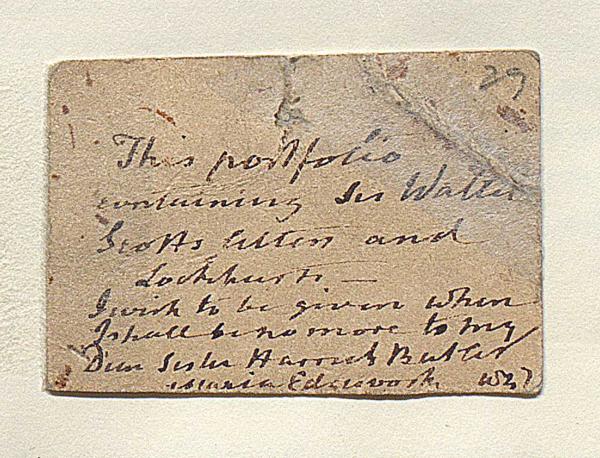 29
This portfolio
containing Sir Walter
Scotts letters and
Lockharts —
I wish to be given when
I shall be no more to my
Dear Sister Harriet Butler
Maria Edgeworth